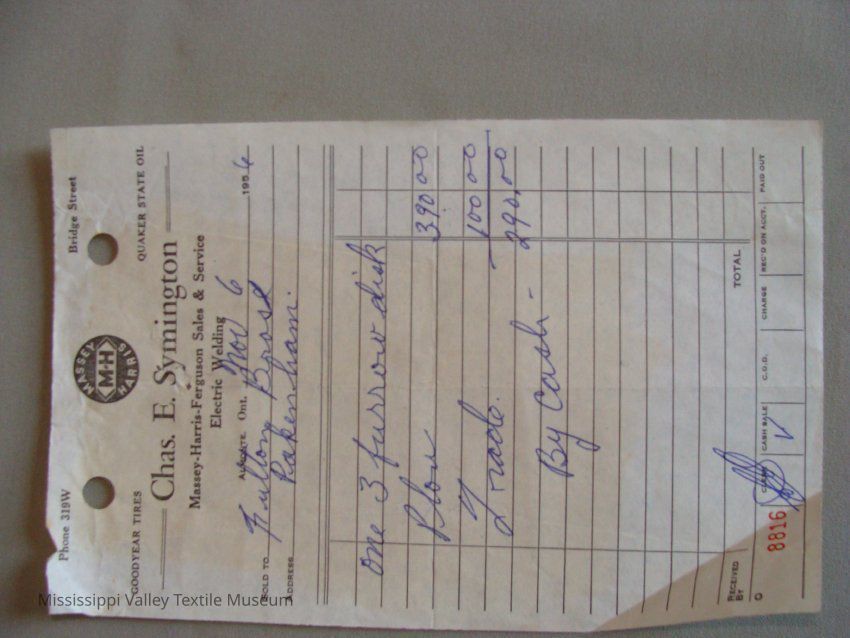 Phone 319W Bridge Street
MASSEY
M-H
HARRIS
GOODYEAR TIRES QUAKER STATE OIL
Chas. E. Symington
Massey-Harris-Ferguson Sales & Service
Electric Welding
Ont. Nov 6 1956
SOLD TO Fulton Bros
ADDRESS Pakenham.
one 3 furrow disk
Plow 390 00
Trade. - 100 00
290.00
By Cash -
TOTAL
RECEIVED BY
CLERK CASH SALE C.O.D. CHARGE REC'D ON ACCT. PAID OUT
8816 V
Mississippi Valley Textile Museum